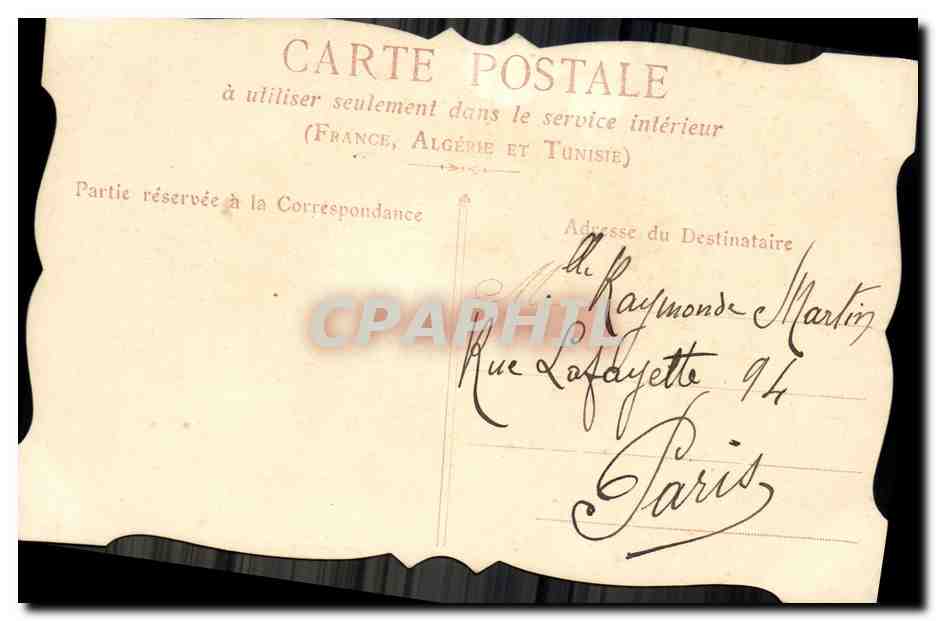 CARTE POSTALE
à utiliser seulement dans le service intérieur
(FRANCE, ALGÉRIE ET TUNISIE)
Partie réservée à la Correspondance
Adresse du Destinataire
Mlle Raymonde Martin
CPAPHIL
Rue Lafayette 94
Paris